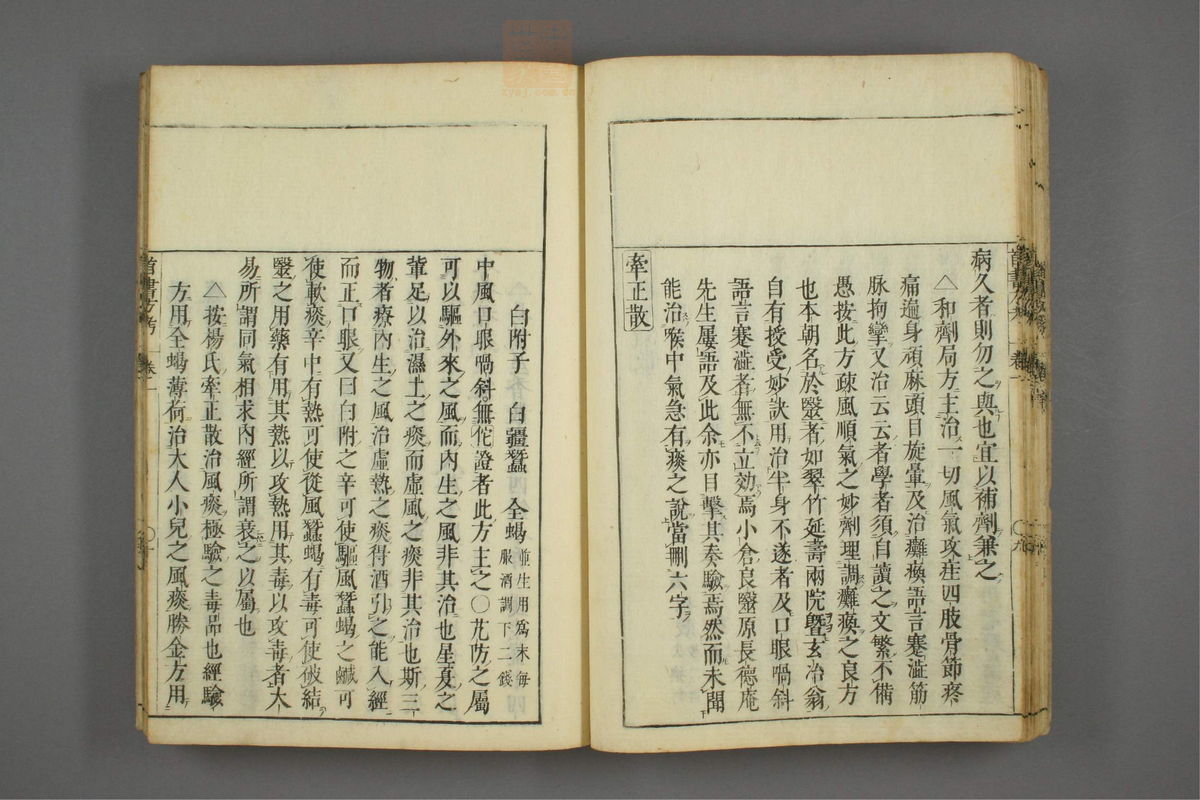 病久者則勿之與也宜以補劑兼之
△和劑局方主治一切風氣攻疰四肢骨節疼
痛遍身頑麻頭目旋暈及治癱瘓語言蹇澁筋
脉拘攣又治云云者學者須自讀之文繁不備
愚按此方疎風順氣之妙劑理調癱瘓之良方
也本朝名於毉者如翠竹延壽兩院曁玄冶翁
自有授受妙訣用治半身不遂者及口眼喎斜
語言蹇澁者無不立効焉小倉良毉原長德庵
先生屢語及此余亦目擊其奏驗焉然而未聞
能治喉中氣急有痰之說當刪六字
牽正散
白附子 白彊蠶 全蝎 並生用爲末每
服酒調下二錢
中風口眼喎斜無佗證者此方主之○艽防之屬
可以驅外來之風而內生之風非其治也星夏之
輩足以治濕土之痰而虛風之痰非其治也斯三
物者療內生之風治虛熱之痰得酒引之能入經
而正口眼又曰白附之辛可使驅風蠶蝎之鹹可
使軟痰辛中有熱可使從風蠶蝎有毒可使破結
毉之用藥有用其熱以攻熱用其毒以攻毒者大
易所謂同氣相求內經所謂衰之以屬也
△按楊氏牽正散治風痰極驗之毒品也經驗
方用全蝎薄荷治大人小兒之風痰勝金方用